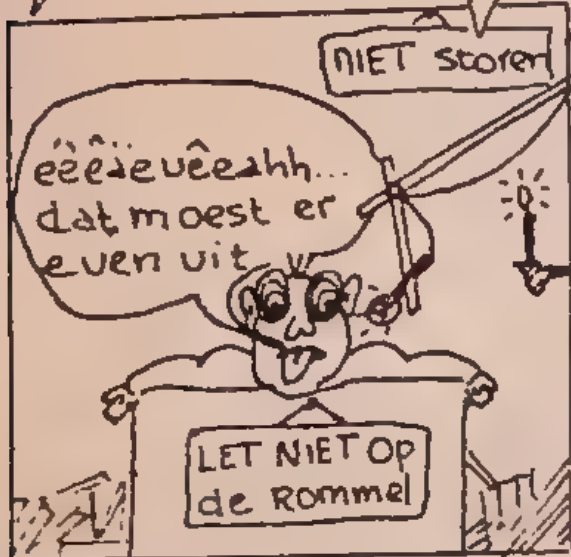 NIET storen
ëëëäeuêeahh...
dat moest er
even uit
LET NIET OP
de Rommel